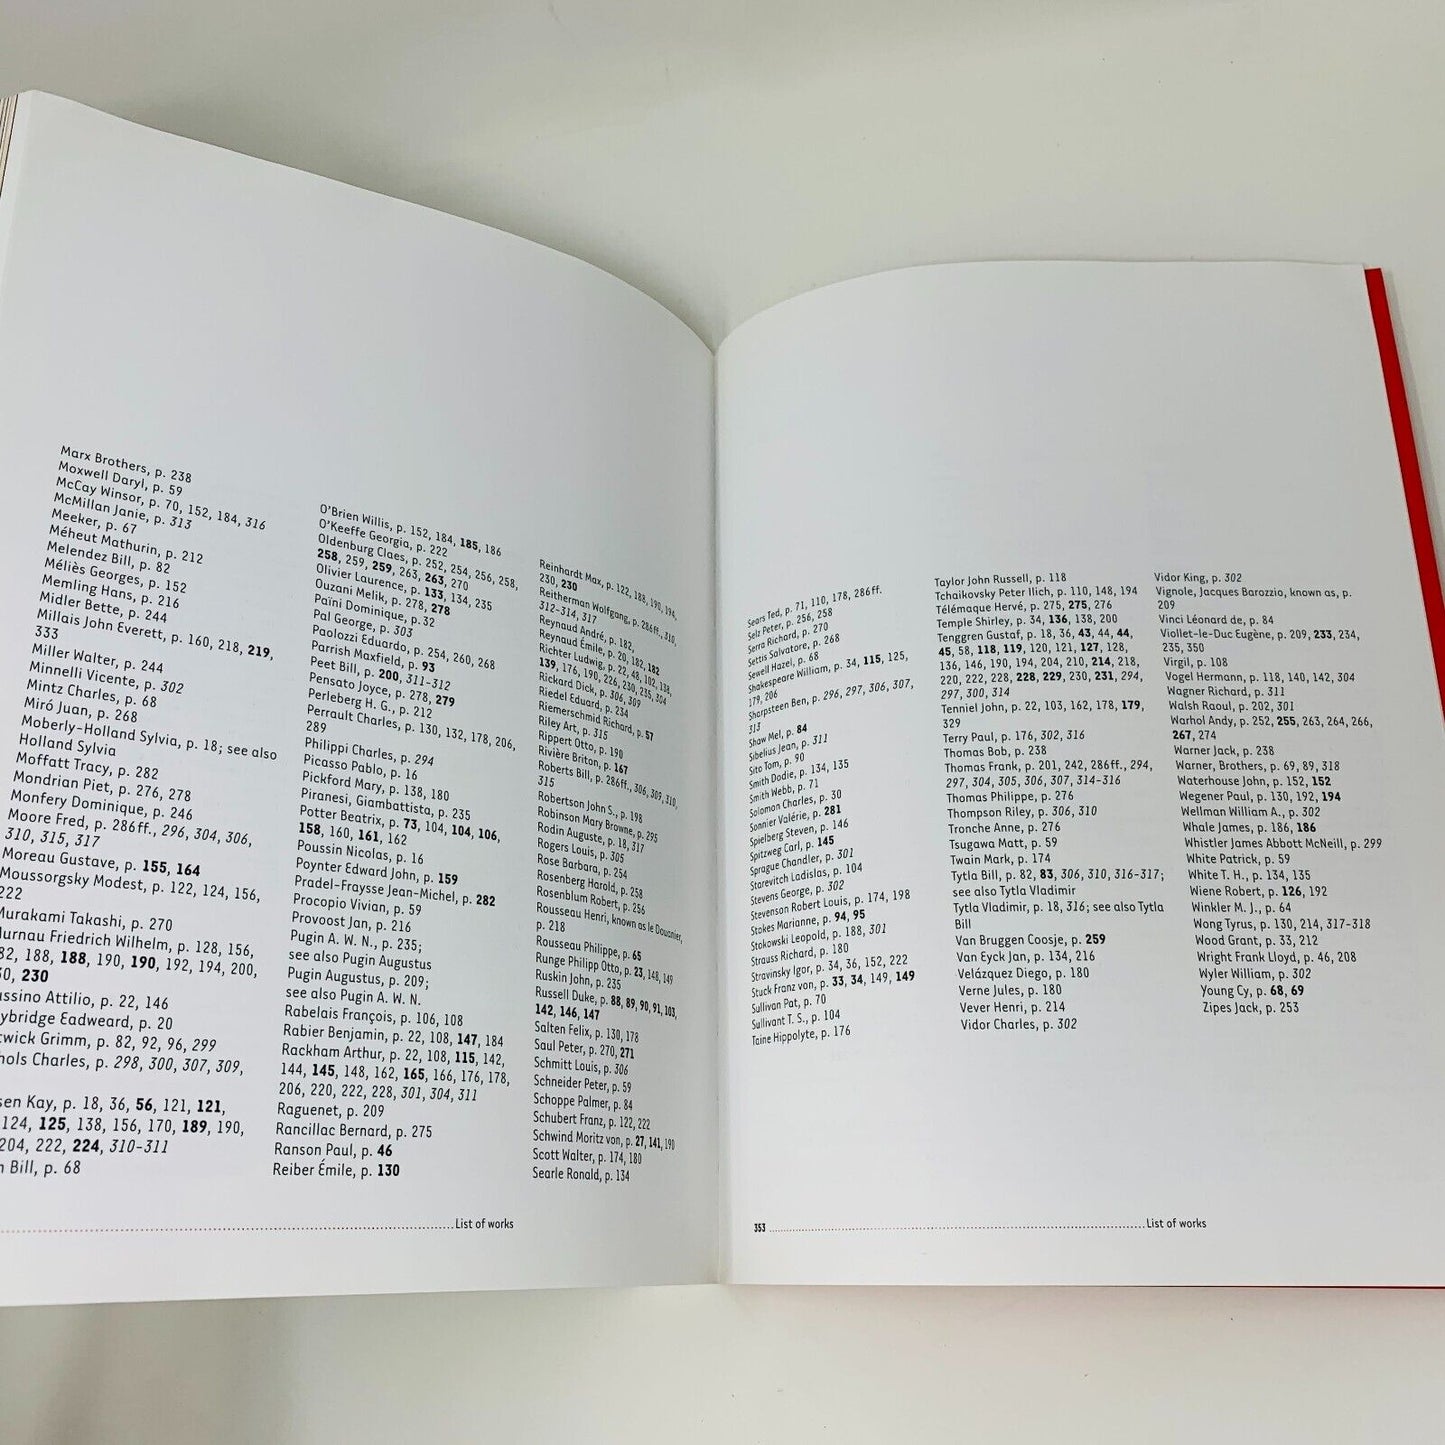 Marx Brothers, p. 238
Moxwell Daryl, p. 59
McCay Winsor, p. 70, 152, 184, 316
McMillan Janie, p. 313
Meeker, p. 67
Méheut Mathurin, p. 212
Melendez Bill, p. 82
Méliès Georges, p. 152
Memling Hans, p. 216
Midler Bette, p. 244
Millais John Everett, p. 160, 218, 219,
333
Miller Walter, p. 244
Minnelli Vicente, p. 302
Mintz Charles, p. 68
Miró Juan, p. 268
Moberly-Holland Sylvia, p. 18; see also
Holland Sylvia
Moffatt Tracy, p. 282
Mondrian Piet, p. 276, 278
Monfery Dominique, p. 246
Moore Fred, p. 286ff., 296, 304, 306,
310, 315, 317
Moreau Gustave, p. 155, 164
Moussorgsky Modest, p. 122, 124, 156,
222
Murakami Takashi, p. 270
Murnau Friedrich Wilhelm, p. 128, 156,
82, 188, 188, 190, 190, 192, 194, 200,
0, 230
ssino Attilio, p. 22, 146
ybridge Eadweard, p. 20
twick Grimm, p. 82, 92, 96, 299
hols Charles, p. 298, 300, 307, 309,
sen Kay, p. 18, 36, 56, 121, 121,
124, 125, 138, 156, 170, 189, 190,
204, 222, 224, 310-311
n Bill, p. 68
O'Brien Willis, p. 152, 184, 185, 186
O'Keeffe Georgia, p. 222
Oldenburg Claes, p. 252, 254, 256, 258,
258, 259, 259, 263, 263, 270
Olivier Laurence, p. 133, 134, 235
Ouzani Melik, p. 278, 278
Païni Dominique, p. 32
Pal George, p. 303
Paolozzi Eduardo, p. 254, 260, 268
Parrish Maxfield, p. 93
Peet Bill, p. 200, 311-312
Pensato Joyce, p. 278, 279
Perleberg H. G., p. 212
Perrault Charles, p. 130, 132, 178, 206,
289
Philippi Charles, p. 294
Picasso Pablo, p. 16
Pickford Mary, p. 138, 180
Piranesi, Giambattista, p. 235
Potter Beatrix, p. 73, 104, 104, 106,
158, 160, 161, 162
Poussin Nicolas, p. 16
Poynter Edward John, p. 159
Pradel-Fraysse Jean-Michel, p. 282
Procopio Vivian, p. 59
Provoost Jan, p. 216
Pugin A. W. N., p. 235;
see also Pugin Augustus
Pugin Augustus, p. 209;
see also Pugin A. W. N.
Rabelais François, p. 106, 108
Rabier Benjamin, p. 22, 108, 147, 184
Rackham Arthur, p. 22, 108, 115, 142,
144, 145, 148, 162, 165, 166, 176, 178,
206, 220, 222, 228, 301, 304, 311
Raguenet, p. 209
Rancillac Bernard, p. 275
Ranson Paul, p. 46
Reiber Émile, p. 130
Reinhardt Max, p. 122, 188, 190, 194,
230, 230
Reitherman Wolfgang, p. 286ff., 310,
312-314, 317
Reynaud André, p. 182,
Reynaud Émile, p. 20, 182, 182
Richter Ludwig, p. 22, 48, 102, 138,
139, 176, 190, 226, 230, 235, 304
Rickard Dick, p. 306, 309
Riedel Eduard, p. 234
Riemerschmid Richard, p. 57
Riley Art, p. 315
Rippert Otto, p. 190
Rivière Briton, p. 167
Roberts Bill, p. 286ff., 306, 309, 310,
315
Robertson John S., p. 198
Robinson Mary Browne, p. 295
Rodin Auguste, p. 18, 317
Rogers Louis, p. 305
Rose Barbara, p. 254
Rosenberg Harold, p. 258
Rosenblum Robert, p. 256
Rousseau Henri, known as le Douanier,
p. 218
Rousseau Philippe, p. 65
Runge Philipp Otto, p. 23, 148, 149
Ruskin John, p. 235
Russell Duke, p. 88, 89, 90, 91, 103,
142, 146, 147
Salten Felix, p. 130, 178
Saul Peter, p. 270, 271
Schmitt Louis, p. 306
Schneider Peter, p. 59
Schoppe Palmer, p. 84
Schubert Franz, p. 122, 222
Schwind Moritz von, p. 27, 141, 190
Scott Walter, p. 174, 180
Searle Ronald, p. 134
List of works
Sears Ted, p. 71, 110, 178, 286ff.
Selz Peter, p. 256, 258
Serra Richard, p. 270
Settis Salvatore, p. 268
Sewell Hazel, p. 68
Shakespeare William, p. 34, 115, 125,
179, 206
Sharpsteen Ben, p. 296, 297, 306, 307,
313
Shaw Mel, p. 84
Sibelius Jean, p. 311
Sito Tom, p. 90
Smith Dodie, p. 134, 135
Smith Webb, p. 71
Solomon Charles, p. 30
Sonnier Valérie, p. 281
Spielberg Steven, p. 146
Spitzweg Carl, p. 145
Sprague Chandler, p. 301
Starevitch Ladislas, p. 104
Stevens George, p. 302
Stevenson Robert Louis, p. 174, 198
Stokes Marianne, p. 94, 95
Stokowski Leopold, p. 188, 301
Strauss Richard, p. 180
Stravinsky Igor, p. 34, 36, 152, 222
Stuck Franz von, p. 33, 34, 149, 149
Sullivan Pat, p. 70
Sullivant T. S., p. 104
Taine Hippolyte, p. 176
Taylor John Russell, p. 118
Tchaikovsky Peter Ilich, p. 110, 148, 194
Télémaque Hervé, p. 275, 275, 276
Temple Shirley, p. 34, 136, 138, 200
Tenggren Gustaf, p. 18, 36, 43, 44, 44,
45, 58, 118, 119, 120, 121, 127, 128,
136, 146, 190, 194, 204, 210, 214, 218,
220, 222, 228, 228, 229, 230, 231, 294,
297, 300, 314
Tenniel John, p. 22, 103, 162, 178, 179,
329
Terry Paul, p. 176, 302, 316
Thomas Bob, p. 238
Thomas Frank, p. 201, 242, 286ff., 294,
297, 304, 305, 306, 307, 314-316
Thomas Philippe, p. 276
Thompson Riley, p. 306, 310
Tronche Anne, p. 276
Tsugawa Matt, p. 59
Twain Mark, p. 174
Tytla Bill, p. 82, 83, 306, 310, 316-317;
see also Tytla Vladimir
Tytla Vladimir, p. 18, 316; see also Tytla
Bill
Van Bruggen Coosje, p. 259
Van Eyck Jan, p. 134, 216
Velázquez Diego, p. 180
Verne Jules, p. 180
Vever Henri, p. 214
Vidor Charles, p. 302
Vidor King, p. 302
Vignole, Jacques Barozzio, known as, p.
209
Vinci Léonard de, p. 84
Viollet-le-Duc Eugène, p. 209, 233, 234,
235, 350
Virgil, p. 108
Vogel Hermann, p. 118, 140, 142, 304
Wagner Richard, p. 311
Walsh Raoul, p. 202, 301
Warhol Andy, p. 252, 255, 263, 264, 266,
267, 274
Warner Jack, p. 238
Warner, Brothers, p. 69, 89, 318
Waterhouse John, p. 152, 152
Wegener Paul, p. 130, 192, 194
Wellman William A., p. 302
Whale James, p. 186, 186
Whistler James Abbott McNeill, p. 299
White Patrick, p. 59
White T. H., p. 134, 135
Wiene Robert, p. 126, 192
Winkler M. J., p. 64
Wong Tyrus, p. 130, 214, 317-318
Wood Grant, p. 33, 212
Wright Frank Lloyd, p. 46, 208
Wyler William, p. 302
Young Cy, p. 68, 69
Zipes Jack, p. 253
353 List of works